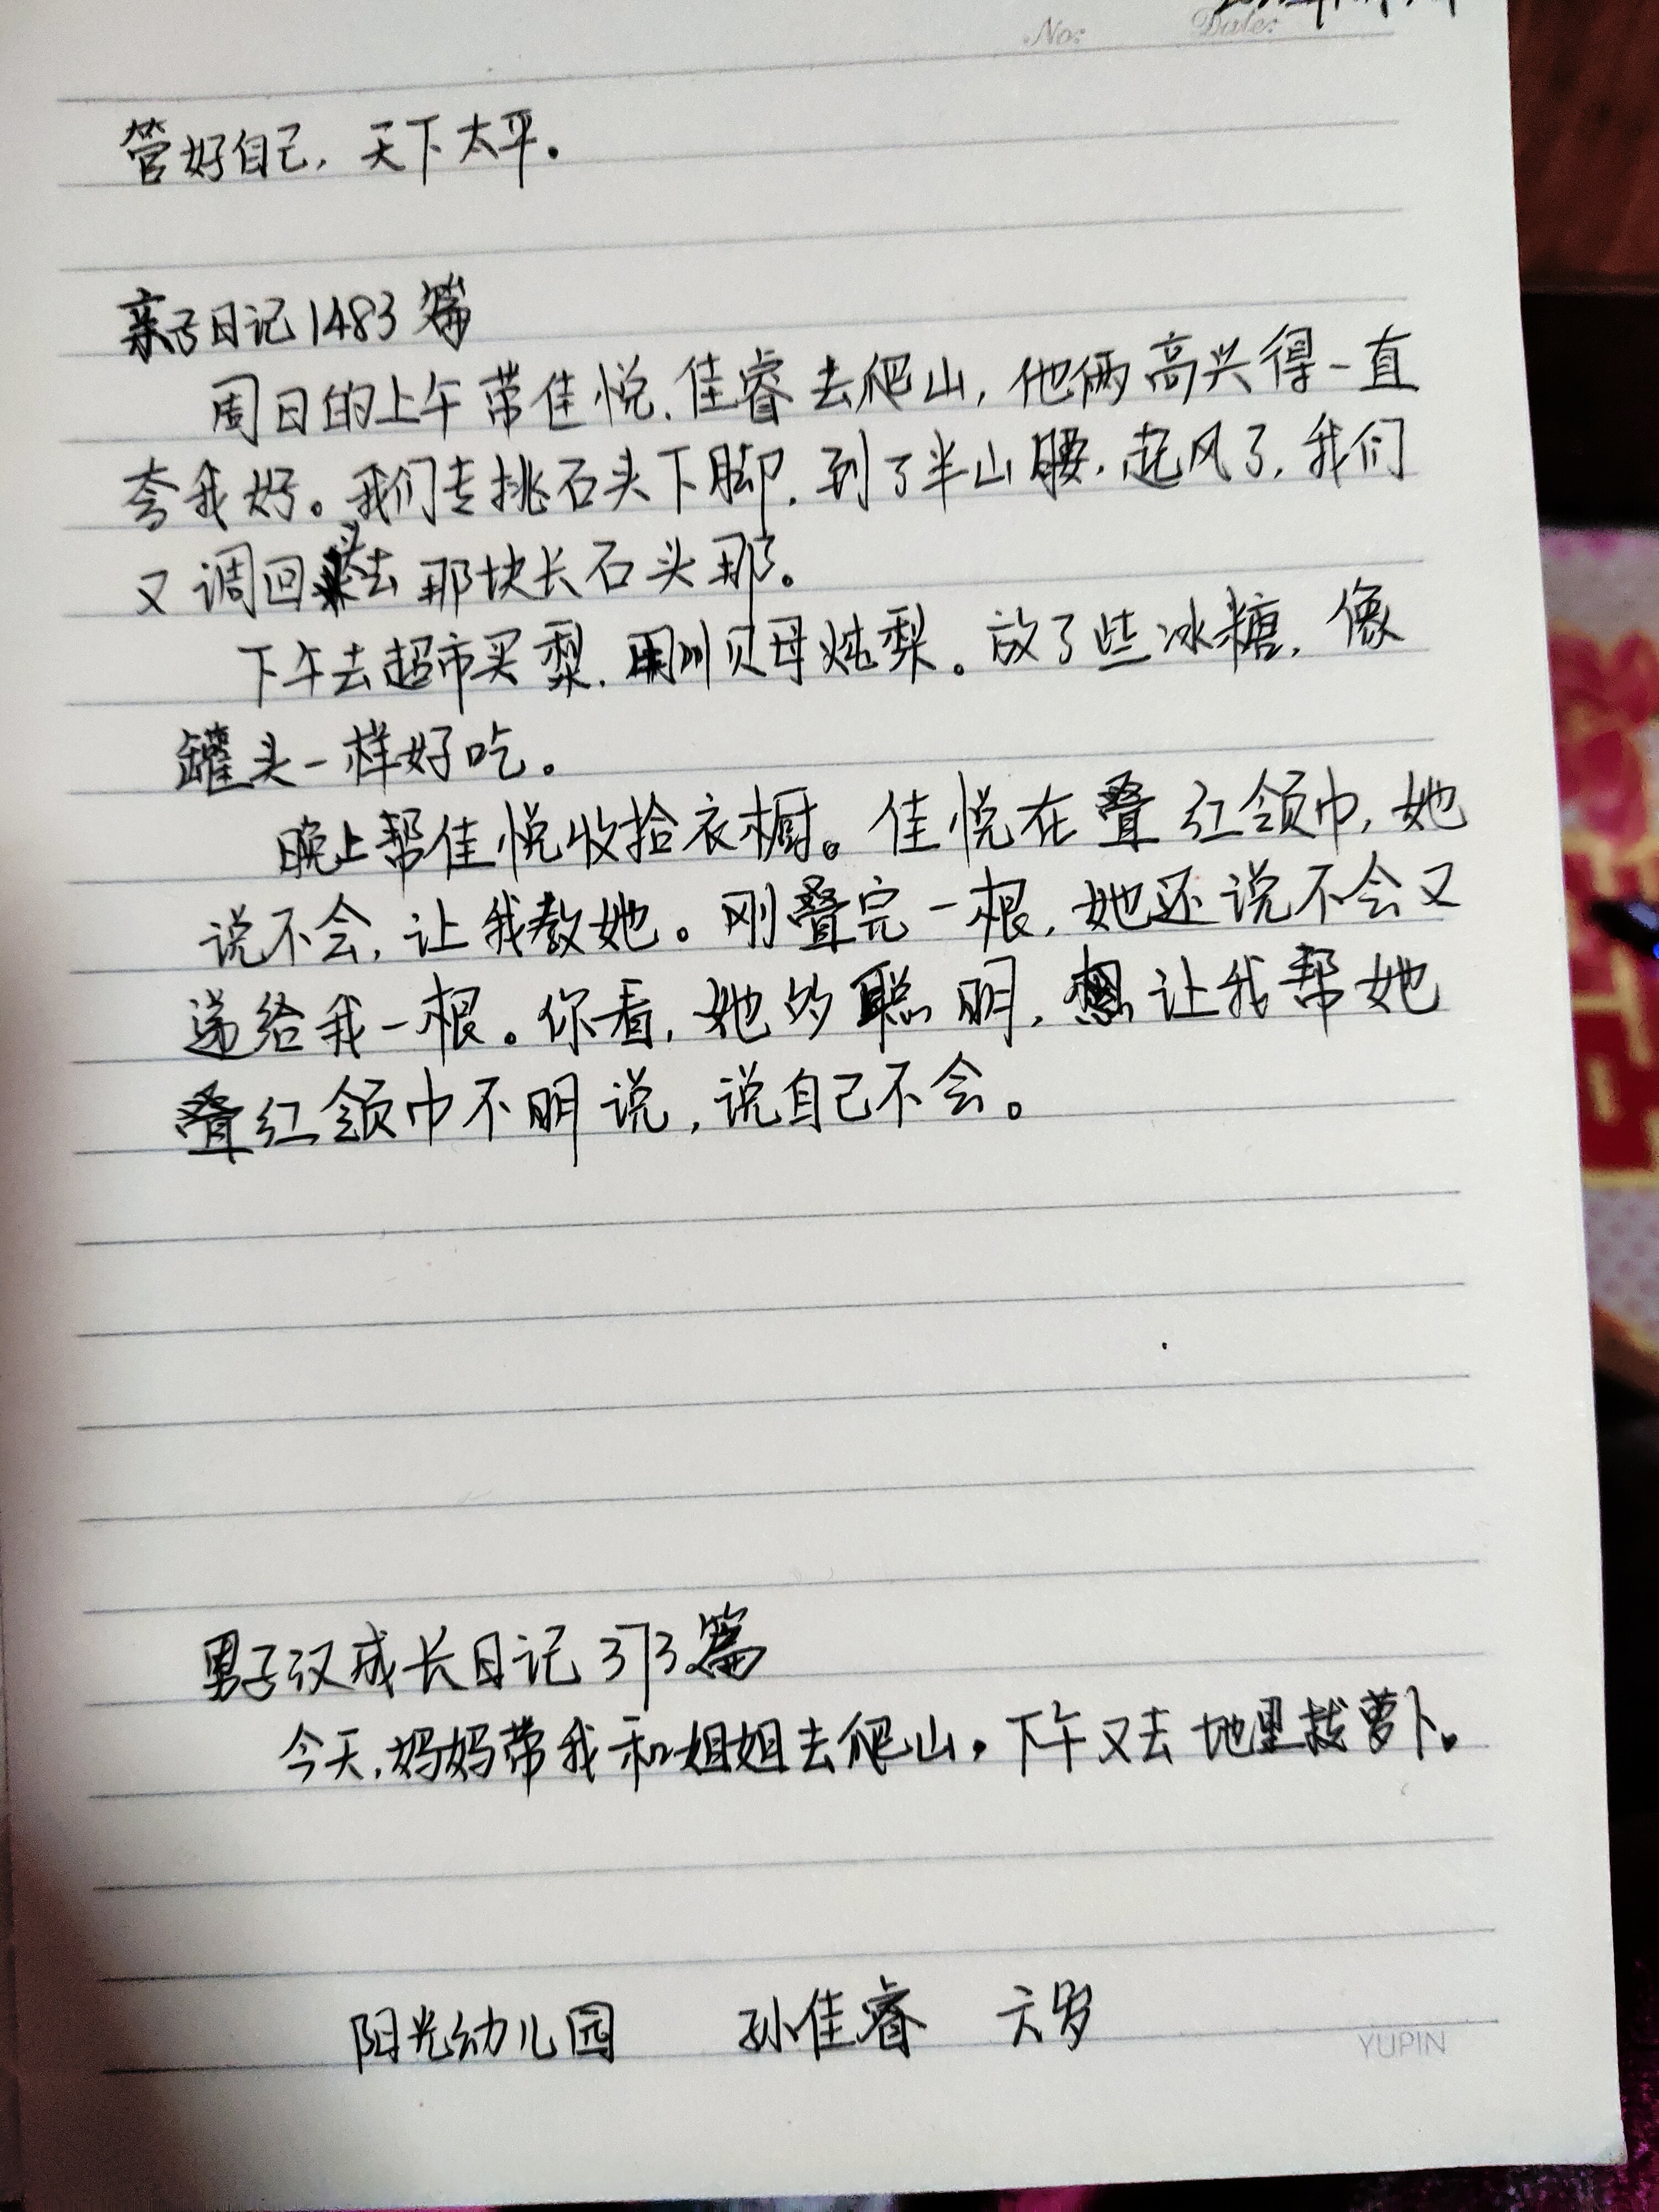 No:    Date:
管好自己，天下太平。
亲子日记1483篇
周日的上午带佳悦、佳睿去爬山，他俩高兴得一直
夸我好。我们专挑石头下脚，到了半山腰，起风了，我们
又调回头去那块长石头那。
下午去超市买梨，用川贝母炖梨。放了些冰糖，像
罐头一样好吃。
晚上帮佳悦收拾衣橱。佳悦在叠红领巾，她
说不会，让我教她。刚叠完一根，她还说不会又
递给我一根。你看，她的聪明，想让我帮她
叠红领巾不明说，说自己不会。
男子汉成长日记373篇
今天，妈妈带我和姐姐去爬山。下午又去地里拔萝卜。
阳光幼儿园    孙佳睿    六岁
YUPIN